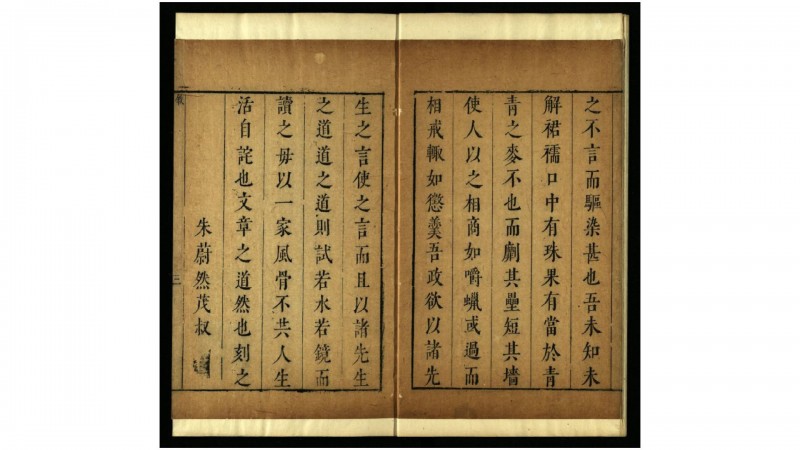 之不言而驅染甚也吾未知未
解裙襦口中有珠果有當於青
青之麥不也而劘其壘短其墻
使人以之相商如嚼蠟或過而
相戒輙如懲羹吾政欲以諸先
生之言使之言而且以諸先生
之道道之道則試若水若鏡而
讀之毋以一家風骨不共人生
活自詫也文章之道然也刻之
朱蔚然茂叔
三